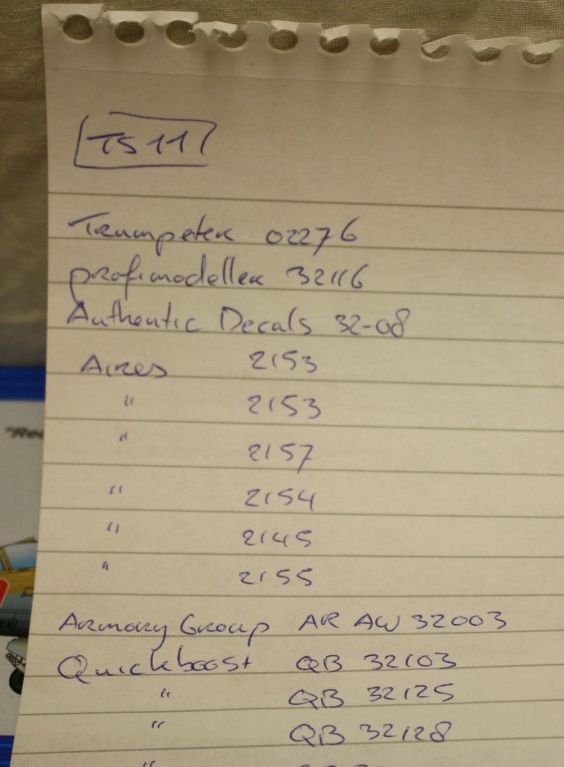 TS 11
Trumpeter 02276
profimodeller 32116
Authentic Decals 32-08
Aires 2153
" 2153
" 2157
" 2154
" 2145
" 2155
Armory Group AR AW 32003
Quickboost QB 32103
" QB 32125
" QB 32128
"